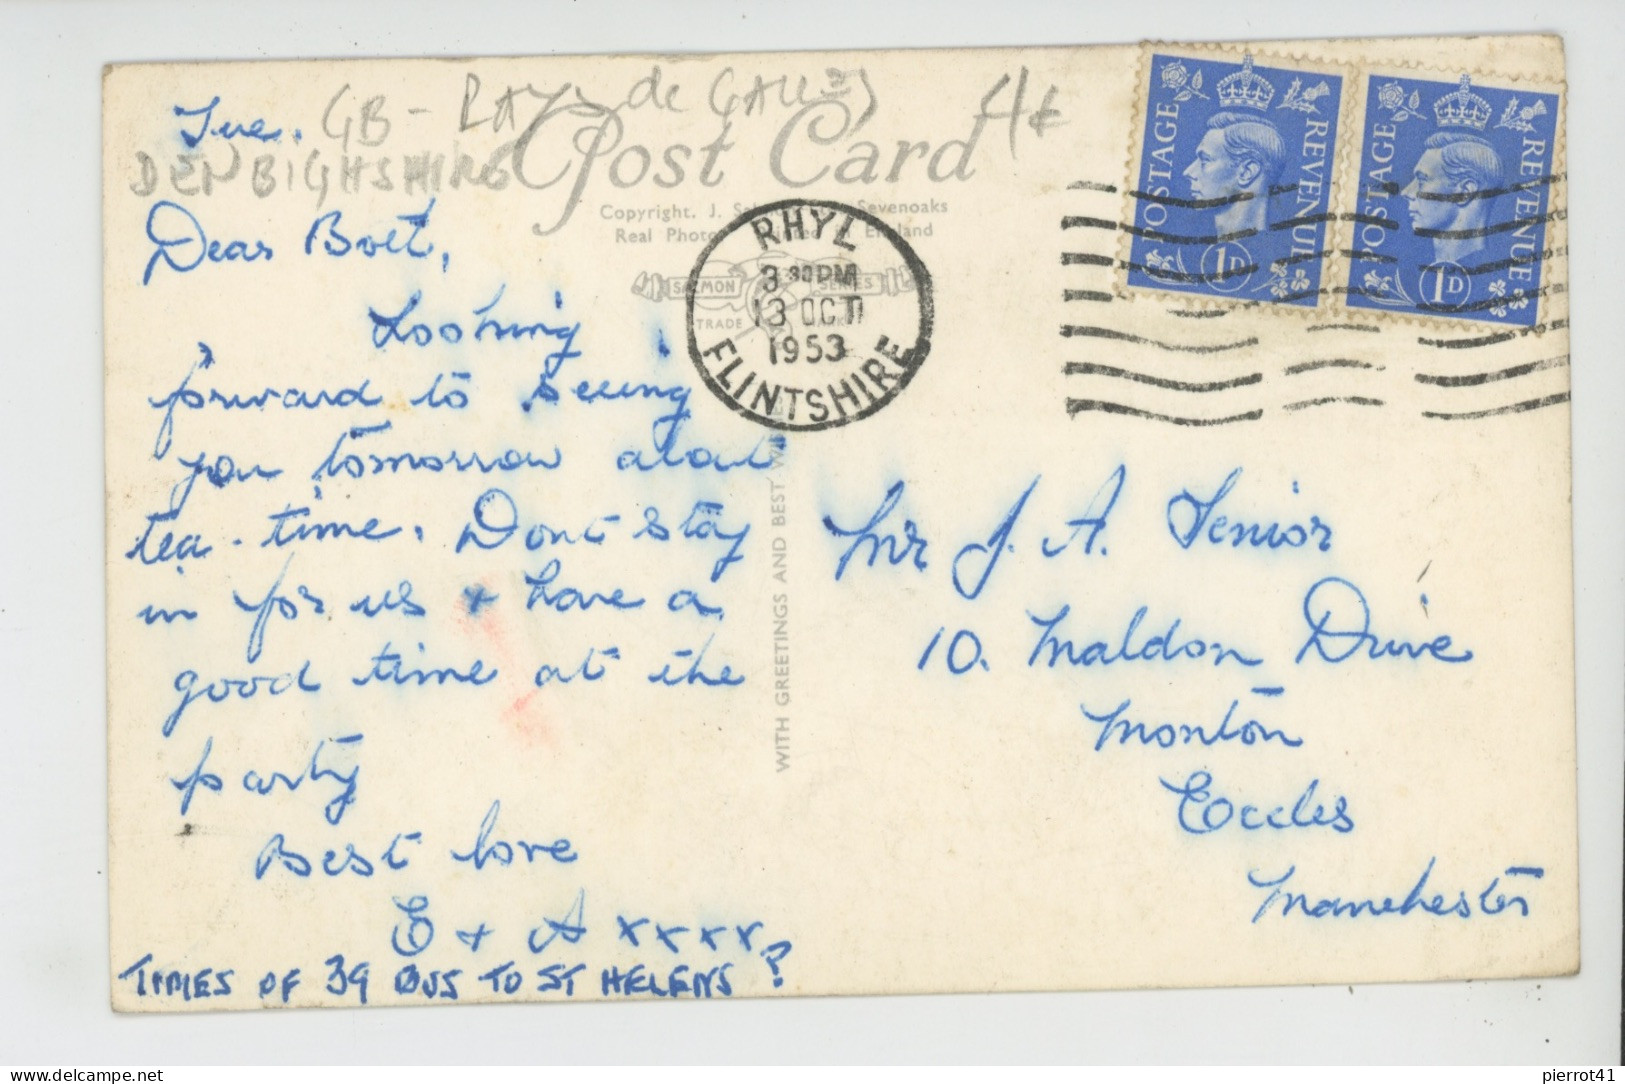 Tue. GB - PAYS de GALLES 4€
DENBIGHSHIRE
Post Card
Copyright. J. Sevenoaks
Real Photo in England
SALMON SERIES
TRADE MARK
RHYL
3 30PM
13 OCT
1953
FLINTSHIRE
POSTAGE REVENUE
1D
POSTAGE REVENUE
1D
Dear
Looking
forward to seeing
you tomorrow about
tea-time. Dont stay
in for us + have a
good time at the
party
Best love
E + A xxxx
TIMES OF 39 BUS TO ST HELENS?
WITH GREETINGS AND BEST
Mr J. A. Senior
10. Maldon Drive
Monton
Eccles
Manchester
pierrot41
delcampe.net